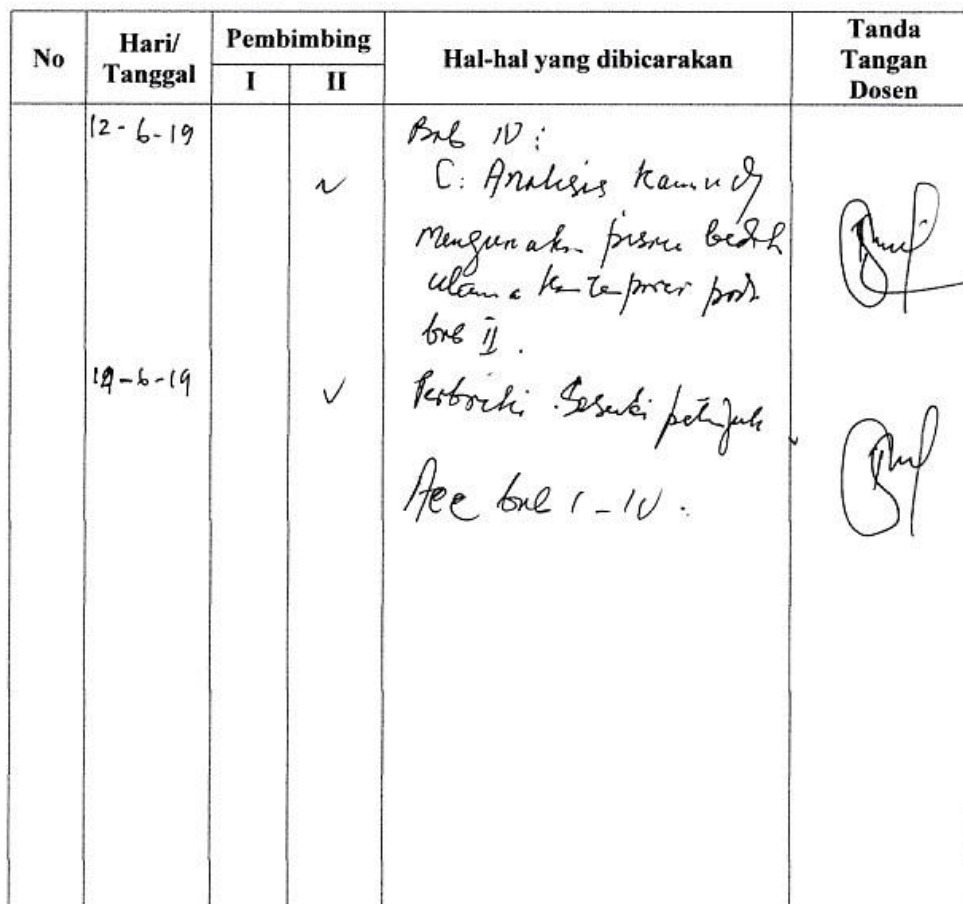 No
Hari/
Tanggal
Pembimbing
I
II
Hal-hal yang dibicarakan
Tanda
Tangan
Dosen
12-6-19
Bab IV :
C: Analisis kamu dg
mengunakn pisau bedah
ulama kontemporer pada
bab II .
19-6-19
Perbaiki Sesuai petunjuk
Acc bab I - IV .